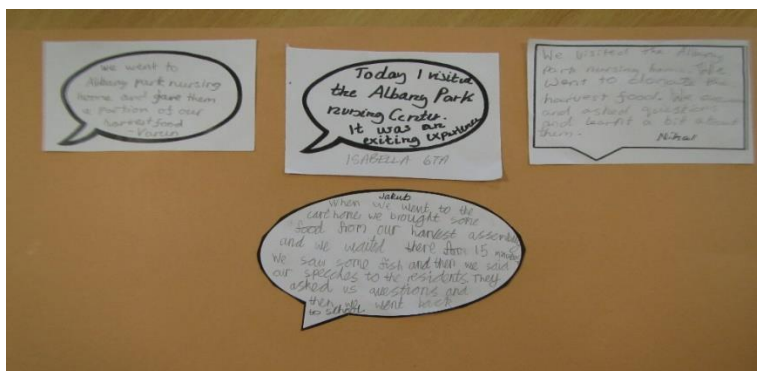 we went to
Albany park nursing
home and gave them
a portion of our
harvest food
- Varun
Today I visited
the Albany Park
nursing Center.
It was an
exiting experience
ISABELLA 6TA
We visited the Albany
park nursing home. We
went to donate the
harvest food. We
and asked questions
and learnt a bit about
them.
Nihal
Jakub
When we went to the
care home we brought some
food from our harvest assembly
and we waited there for 15 minutes
We saw some fish and then we said
our speeches to the residents. They
asked us questions and
then we went back
to school